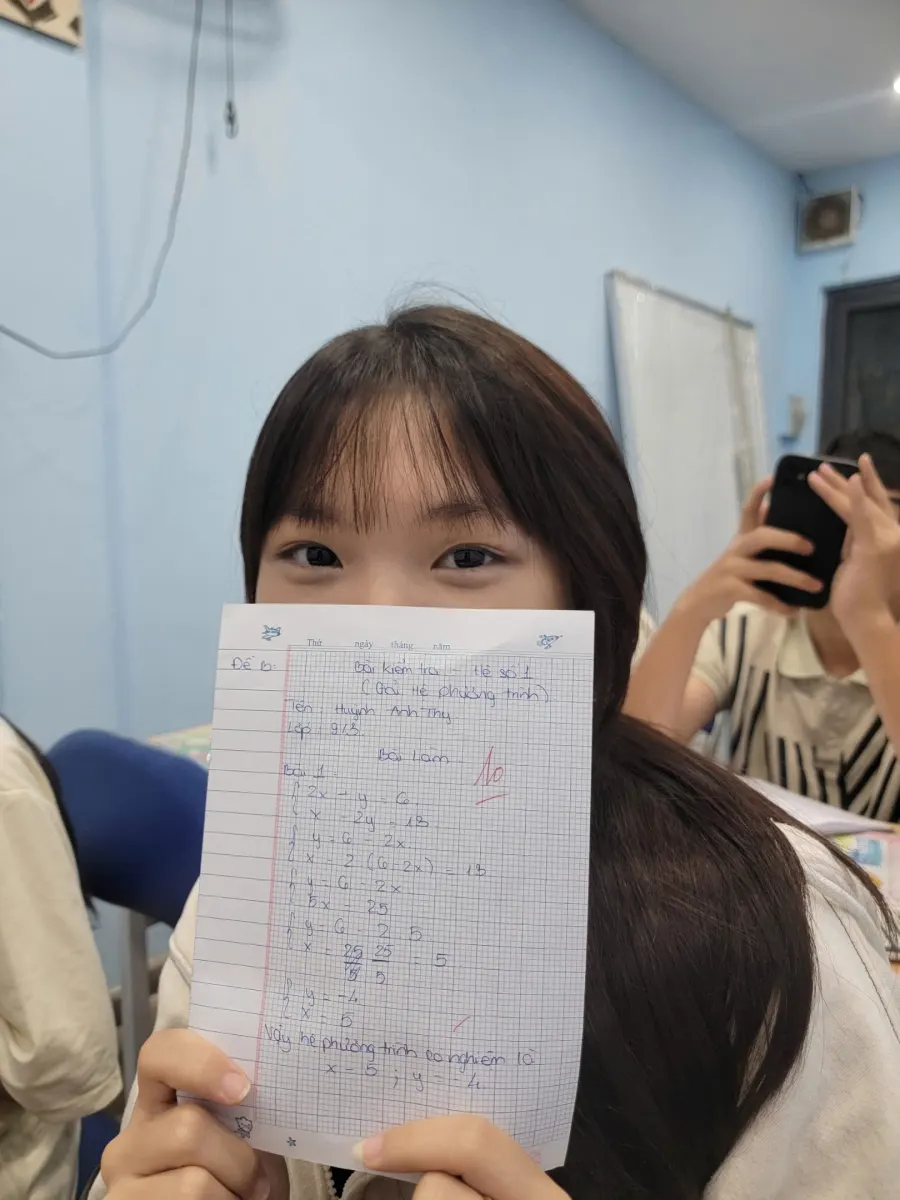 Thứ ngày tháng năm
Đề B:
Bài kiểm tra - Hệ số 1
(Giải Hệ phương trình)
Tên : Huỳnh Anh Thy
Lớp : 9/3.
Bài Làm
10
Bài 1
{ 2x - y = 6
{ x - 2y = 13
{ y = 6 - 2x
{ x - 2 (6-2x) = 13
{ y = 6 - 2x
{ 5x = 25
{ y = 6 - 2 5
{ x = 25/5 25/5 = 5
{ y = -4
{ x = 5
Vậy hệ phương trình có nghiệm là
x = 5 ; y = -4